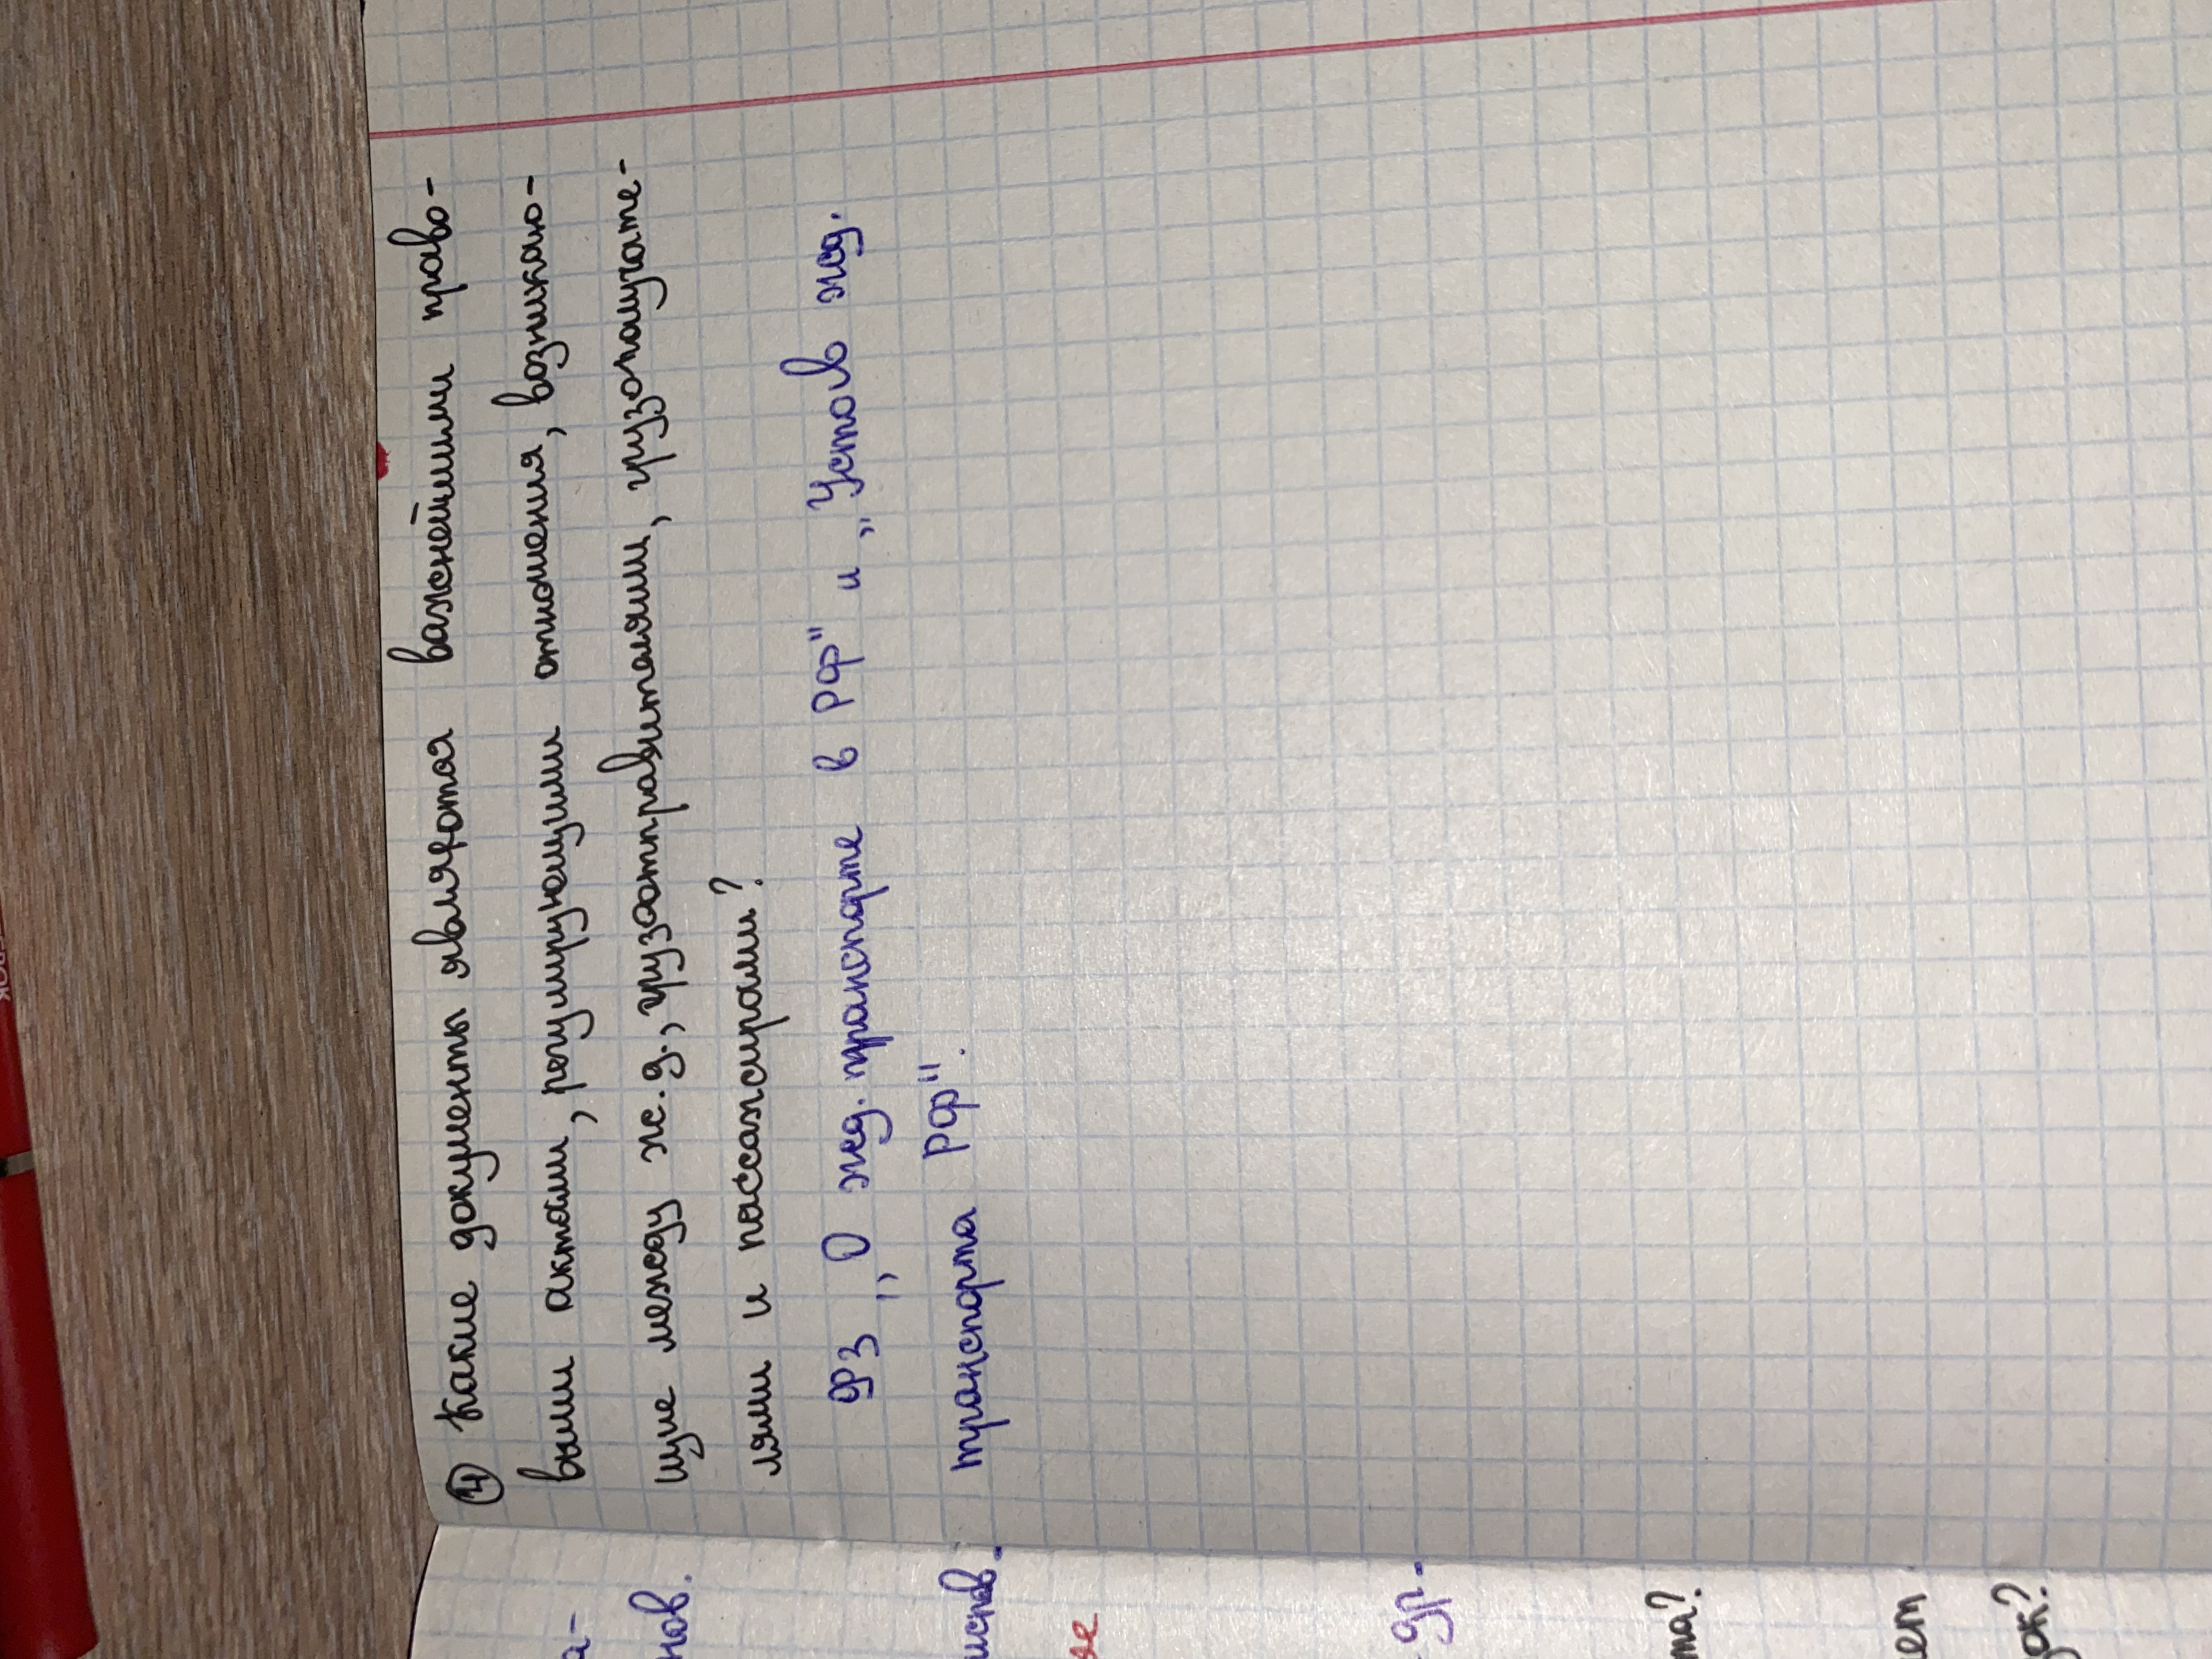 ④ Какие документы являются важнейшими право-
выми актами, регулирующими отношения, возникаю-
щие между ж.д., грузоотправителями, грузополучате-
лями и пассажирами?
ФЗ „О жд. транспорте в РФ" и „Устав жд.
транспорта РФ".
а-
нов.
др-
та?
ет
док?